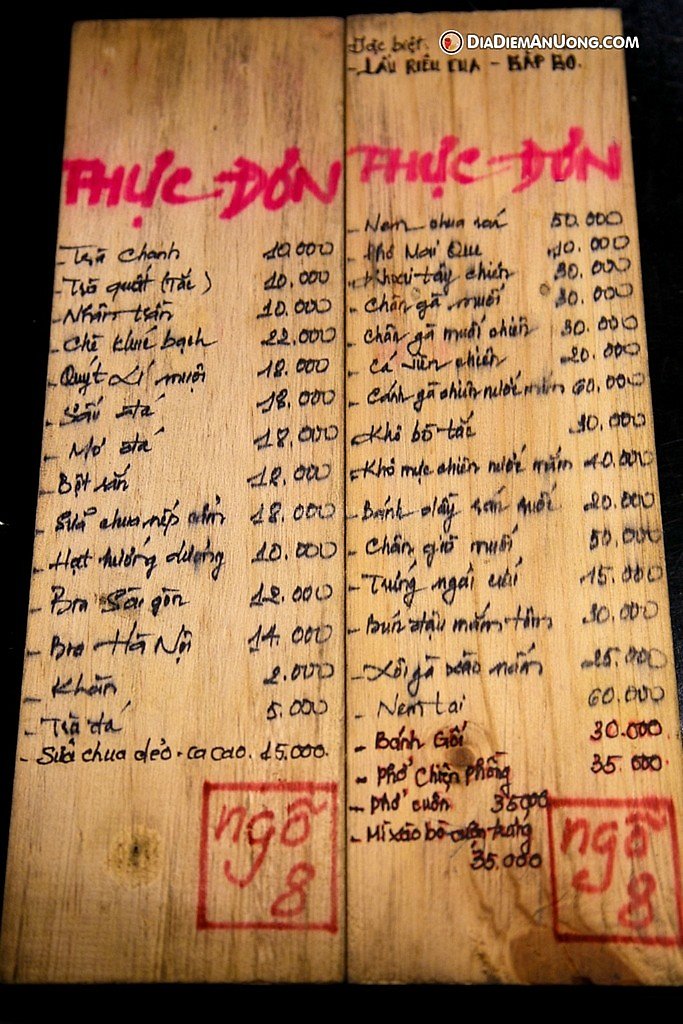 DIADIEMANUONG.COM
THỰC ĐƠN
- Trà chanh 10.000
- Trà quất (Tắc) 10.000
- Nhân trần 10.000
- Chè khúc bạch 22.000
- Quýt xí muội 18.000
- Sấu đá 18.000
- Mơ đá 18.000
- Bột sắn 18.000
- Sữa chua nếp cẩm 18.000
- Hạt hướng dương 10.000
- Bia Sài gòn 12.000
- Bia Hà Nội 14.000
- Khăn 2.000
- Trà đá 5.000
- Sữa chua dẻo - ca cao. 15.000
ngõ
8
Đặc biệt:
- LẨU RIÊU CUA - BẮP BÒ.
THỰC ĐƠN
- Nem chua rán 50.000
- Phô Mai Que 10.000
- Khoai tây chiên 30.000
- Chân gà muối 30.000
- Chân gà muối chiên 30.000
- Cá viên chiên 20.000
- Cánh gà chiên nước mắm 60.000
- Khô bò tắc
- Khô mực chiên nước mắm 40.000
- Bánh dầy rán ruốc 20.000
- Chân giò muối 50.000
- Trứng ngải cứu 15.000
- Bún đậu mắm tôm 30.000
- Xôi gà xào nấm 25.000
- Nem tai 60.000
- Bánh Gối 30.000
- Phở Chiên Phồng 35.000
- Phở cuốn 35000
- Mì xào bò 
35.000
ngõ
8